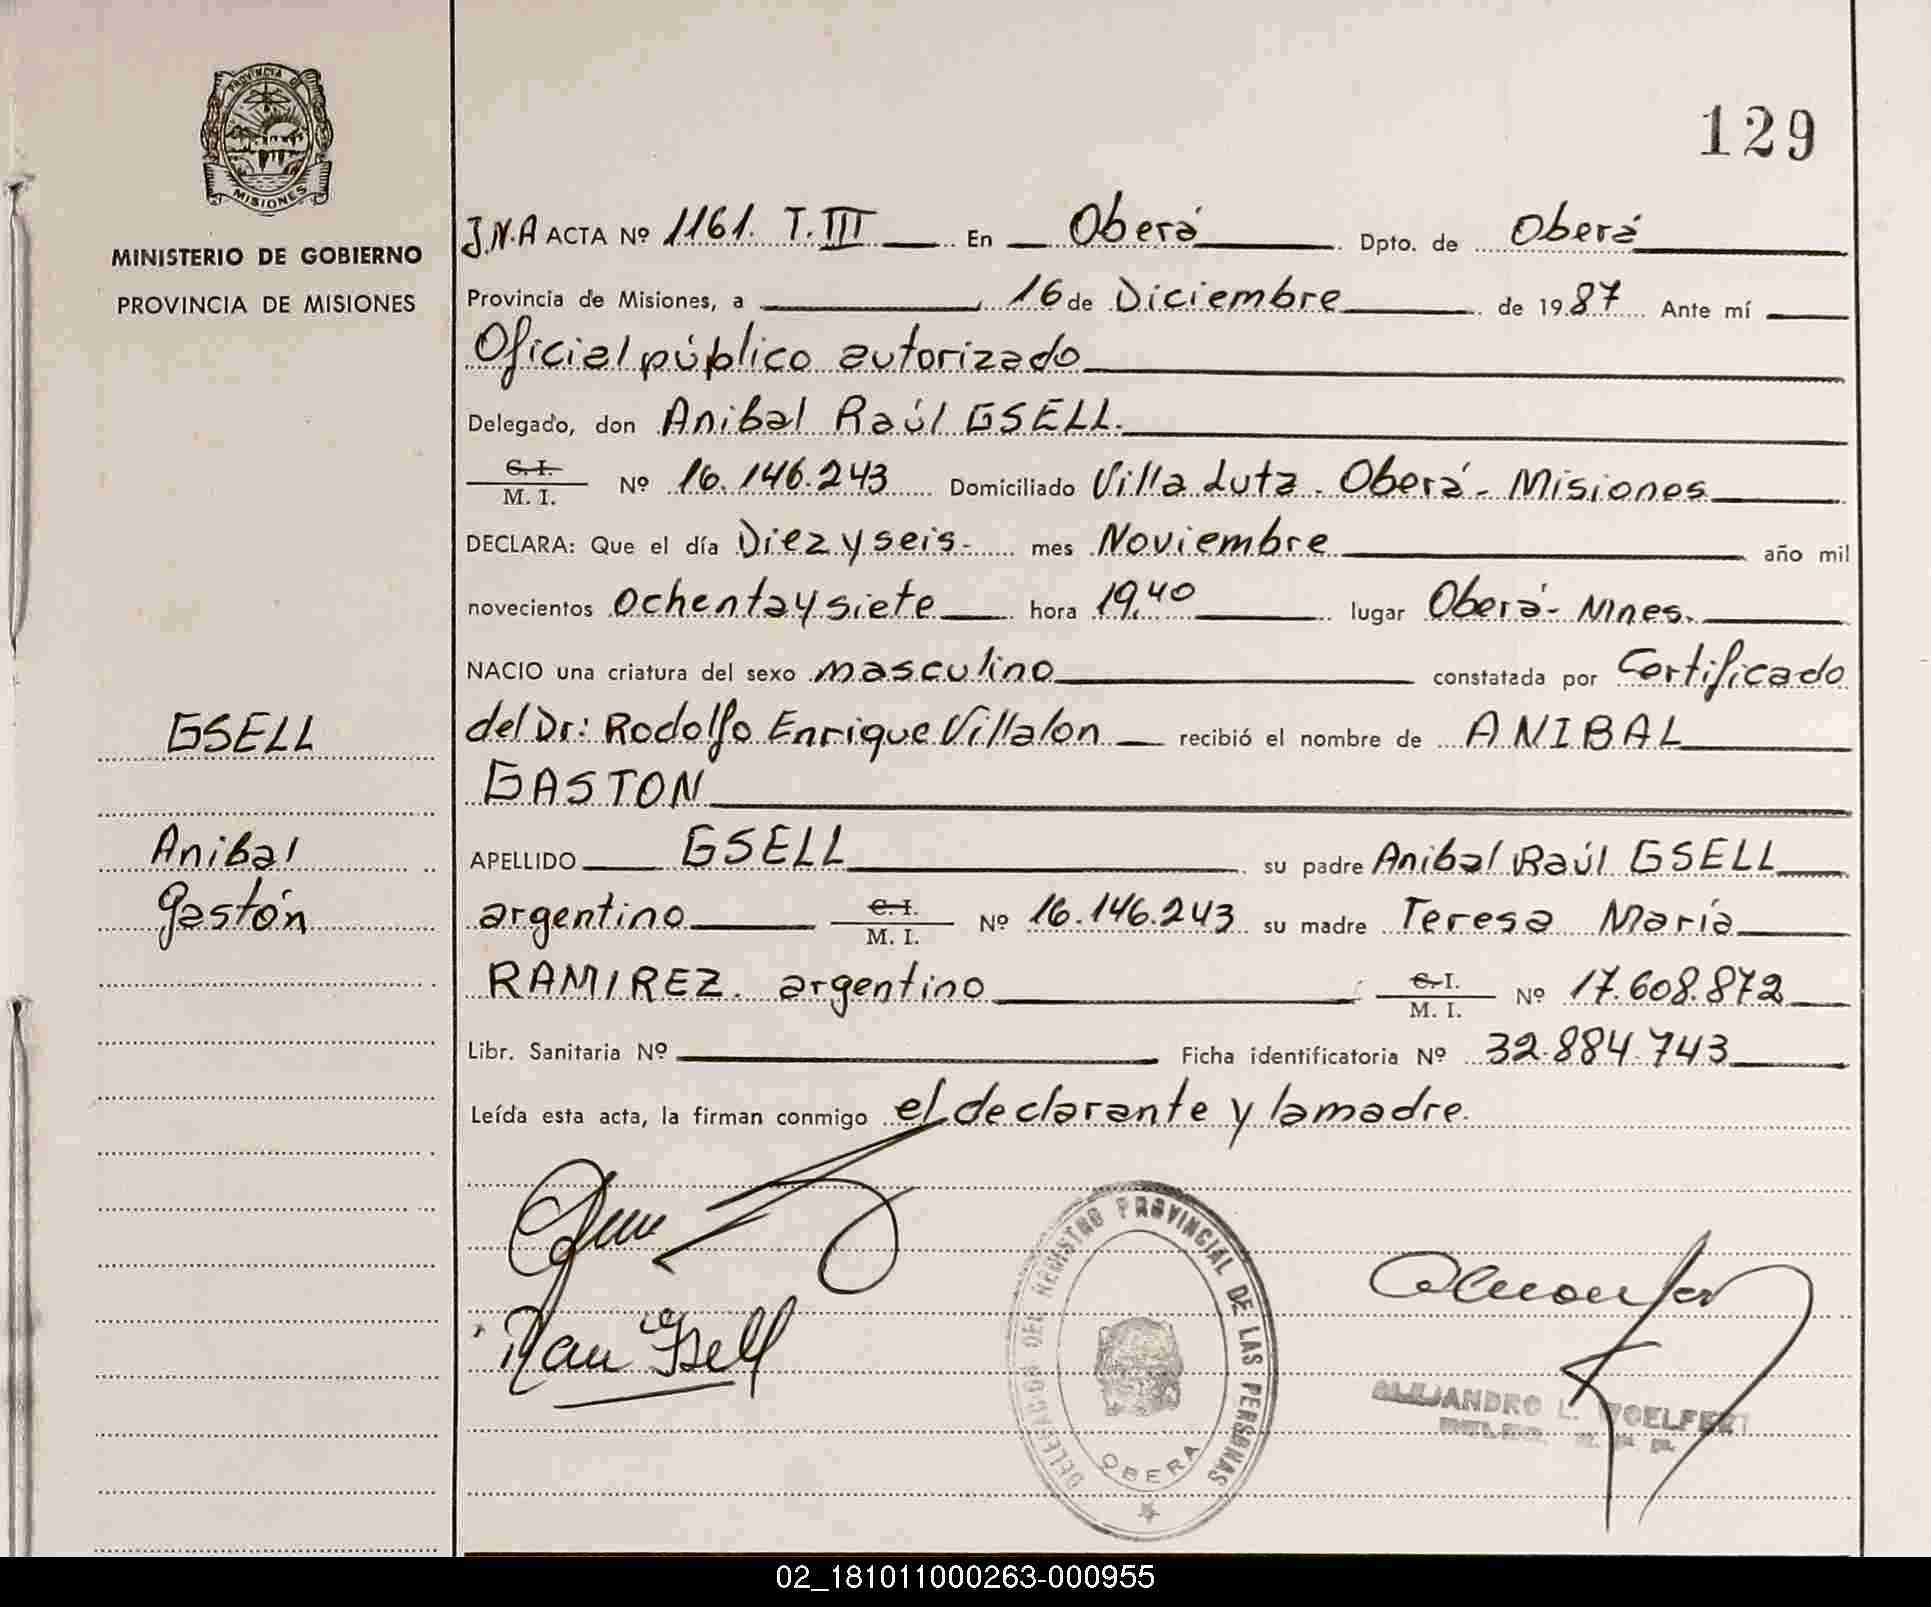 PROVINCIA DE
MISIONES
MINISTERIO DE GOBIERNO
PROVINCIA DE MISIONES
GSELL
Anibal
Gastón
129
J.N.A ACTA Nº 1161. T.III En Oberá Dpto. de Oberá
Provincia de Misiones, a 16 de Diciembre de 1987 Ante mí
Oficial público autorizado
Delegado, don Anibal Raúl GSELL.
C. I.
M. I. Nº 16.146.243 Domiciliado Villa Lutz. Oberá - Misiones
DECLARA: Que el día Diez y seis - mes Noviembre año mil
novecientos ochenta y siete hora 19,40 lugar Oberá - Mnes.
NACIO una criatura del sexo masculino constatada por Certificado
del Dr: Rodolfo Enrique Villalon recibió el nombre de ANIBAL
GASTON
APELLIDO GSELL su padre Anibal Raúl GSELL
argentino C. I.
M. I. Nº 16.146.243 su madre Teresa María
RAMIREZ. argentino C. I.
M. I. Nº 17.608.872
Libr. Sanitaria Nº Ficha identificatoria Nº 32.884.743
Leída esta acta, la firman conmigo el declarante y la madre.
Gsell
DELEGADO DEL REGISTRO PROVINCIAL DE LAS PERSONAS
OBERA
ALEJANDRO L. WOELFERT
02_181011000263-000955